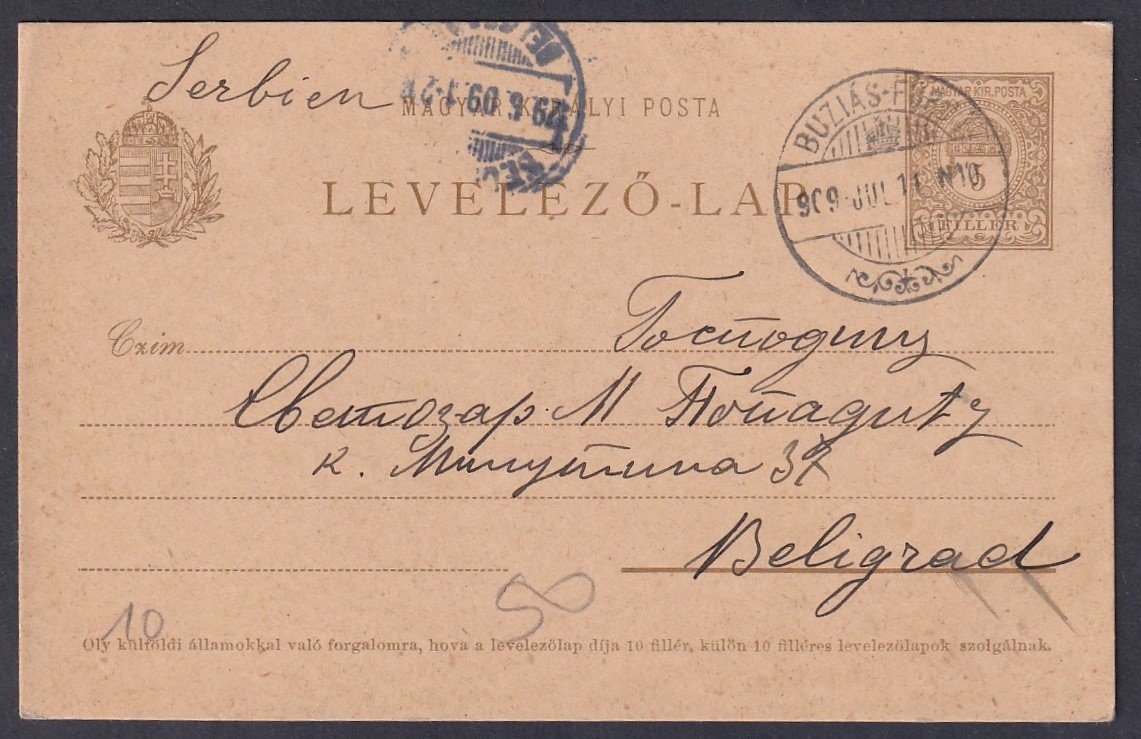 Serbien
MAGYAR KIRÁLYI POSTA
MAGYAR KIR. POSTA
5
FILLÉR
BUZIÁS-FÜR
909 JUL 11 N10
29.6.09.1-2
LEVELEZŐ-LAP
Czim
Господину
Светозар М Попадић
к. Милутина 37
Beligrad
10
50
Oly külföldi államokkal való forgalomra, hová a levelezőlap díja 10 fillér, külön 10 filléres levelezőlapok szolgálnak.